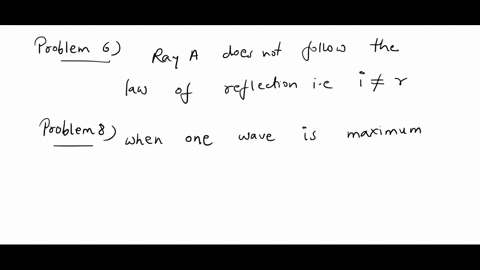 Problem 6) Ray A does not follow the
law of reflection i.e i ≠ r
Problem 8) when one wave is maximum